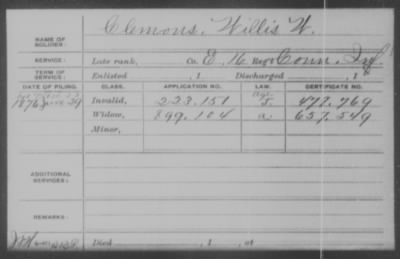 NAME OF SOLDIER: Clemons, Willis W.
SERVICE: Late rank, Co. E, 16 Reg't Conn. Inf.
TERM OF SERVICE: Enlisted , 1 Discharged , 1
DATE OF FILING. CLASS. APPLICATION NO. LAW. CERTIFICATE NO.
1876 29 Invalid, 223.151 472.769
Widow, 899.104 a 657.549
Minor,
ADDITIONAL SERVICES:
REMARKS:
Died , 1 , at